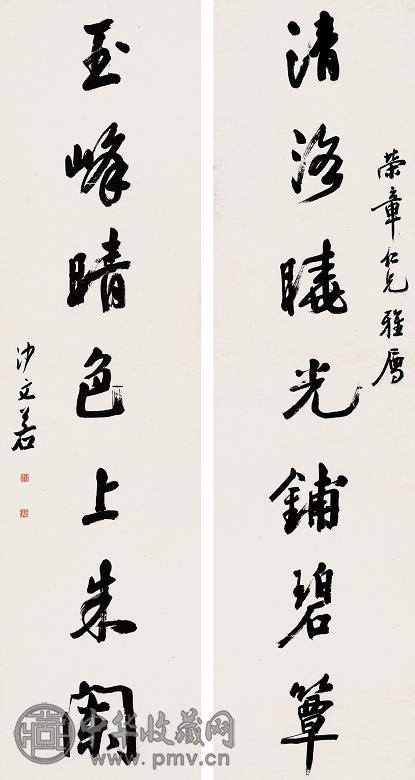 榮章仁兄雅屬
清洛曉光鋪碧簟
玉峰晴色上朱闌
沙文若
中华收藏网
www.pmv.cn